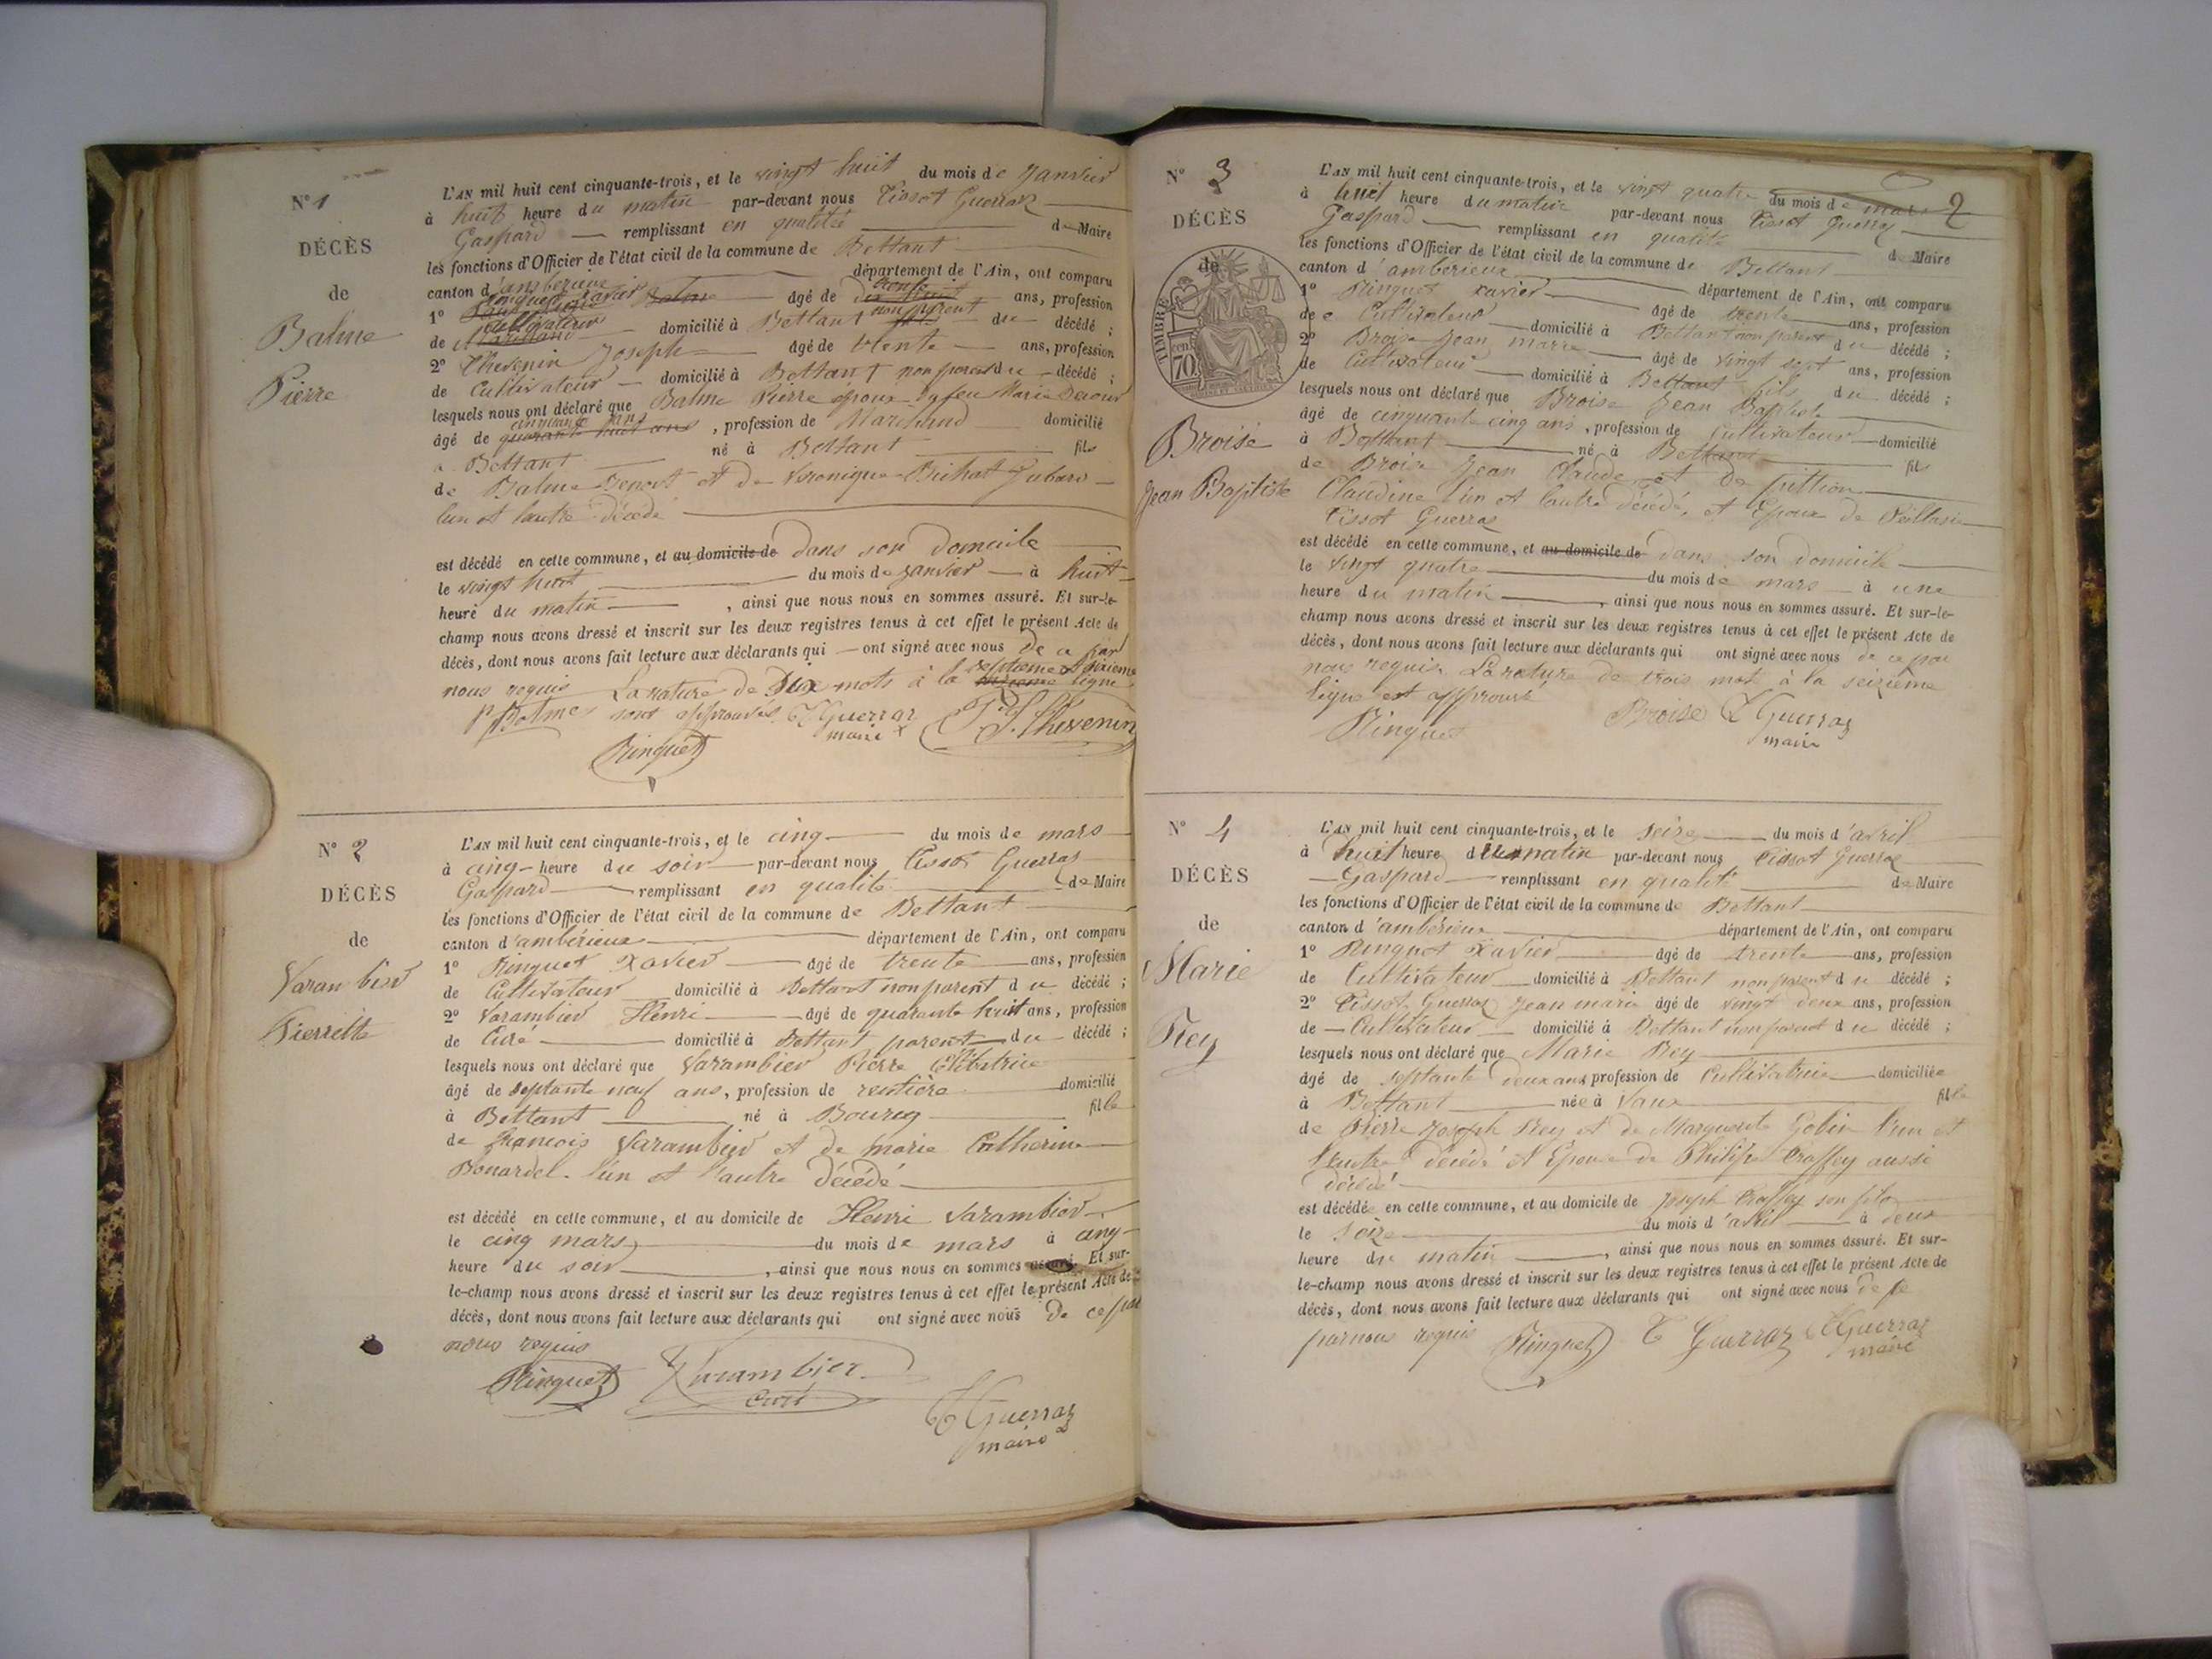 N° 1
DÉCÈS
de
Balme
Pierre
L'AN mil huit cent cinquante-trois, et le vingt huit du mois de Janvier
à huit heure du matin par-devant nous Tissot Guerraz
Gaspard remplissant en qualité de Maire
les fonctions d'Officier de l'état civil de la commune de Bettant
canton d'ambérieux département de l'Ain, ont comparu
1° Rinquet Xavier âgé de trente ans, profession
de Cultivateur domicilié à Bettant non parent du décédé ;
2° Thevenin Joseph âgé de trente ans, profession
de Cultivateur domicilié à Bettant non parent du décédé ;
lesquels nous ont déclaré que Balme Pierre époux de feu Marie
âgé de cinquante ans, profession de Marchand domicilié
à Bettant né à Bettant fils
de Balme Benoit et de Véronique
l'un et l'autre décédé
est décédé en cette commune, et au domicile de dans son domicile
le vingt huit du mois de janvier à huit
heure du matin, ainsi que nous nous en sommes assuré. Et sur-le-
champ nous avons dressé et inscrit sur les deux registres tenus à cet effet le présent Acte de
décès, dont nous avons fait lecture aux déclarants qui ont signé avec nous de ce par
nous requis La rature de Dix mots à la septième et dixième ligne
sont approuvés
P Balme T Guerraz maire J. Thevenin
Rinquet
N° 2
DÉCÈS
de
Varambier
Pierrette
L'AN mil huit cent cinquante-trois, et le cinq du mois de mars
à cinq heure du soir par-devant nous Tissot Guerraz
Gaspard remplissant en qualité de Maire
les fonctions d'Officier de l'état civil de la commune de Bettant
canton d'ambérieux département de l'Ain, ont comparu
1° Rinquet Xavier âgé de trente ans, profession
de Cultivateur domicilié à Bettant non parent du décédé ;
2° Varambier Henri âgé de quarante huit ans, profession
de Curé domicilié à Bettant parent du décédé ;
lesquels nous ont déclaré que Varambier Pierre Célibatrice
âgé de septante neuf ans, profession de rentière domicilié
à Bettant né à Bourg fille
de françois Varambier et de marie Catherine
Bonardel l'un et l'autre décédé
est décédé en cette commune, et au domicile de Henri Varambier
le cinq mars du mois de mars à cinq
heure du soir, ainsi que nous nous en sommes assuré. Et sur-
le-champ nous avons dressé et inscrit sur les deux registres tenus à cet effet le présent Acte de
décès, dont nous avons fait lecture aux déclarants qui ont signé avec nous de ce par
nous requis
Rinquet Varambier
curé
T Guerraz
maire
2
N° 3
DÉCÈS
de
TIMBRE
70
Broise
Jean Baptiste
L'AN mil huit cent cinquante-trois, et le vingt quatre du mois de mars
à huit heure du matin par-devant nous Tissot Guerraz
Gaspard remplissant en qualité de Maire
les fonctions d'Officier de l'état civil de la commune de Bettant
canton d'ambérieux département de l'Ain, ont comparu
1° Rinquet Xavier âgé de trente ans, profession
de Cultivateur domicilié à Bettant non parent du décédé ;
2° Broise Jean marie âgé de vingt sept ans, profession
de Cultivateur domicilié à Bettant fils du décédé ;
lesquels nous ont déclaré que Broise Jean Baptiste
âgé de cinquante cinq ans, profession de Cultivateur domicilié
à Bettant né à Bettant fils
de Broise Jean Claude et de
Claudine l'un et l'autre décédé, et Epoux de
Tissot Guerraz
est décédé en cette commune, et au domicile de dans son domicile
le vingt quatre du mois de mars à une
heure du matin, ainsi que nous nous en sommes assuré. Et sur-le-
champ nous avons dressé et inscrit sur les deux registres tenus à cet effet le présent Acte de
décès, dont nous avons fait lecture aux déclarants qui ont signé avec nous de ce par
nous requis La rature de trois mot à la seizième
ligne est approuvé
Rinquet Broise T Guerraz
maire
N° 4
DÉCÈS
de
Marie
Rey
L'AN mil huit cent cinquante-trois, et le seize du mois d'avril
à huit heure du matin par-devant nous Tissot Guerraz
Gaspard remplissant en qualité de Maire
les fonctions d'Officier de l'état civil de la commune de Bettant
canton d'ambérieux département de l'Ain, ont comparu
1° Rinquet Xavier âgé de trente ans, profession
de Cultivateur domicilié à Bettant non parent du décédé ;
2° Tissot Guerraz Jean marie âgé de vingt deux ans, profession
de Cultivateur domicilié à Bettant non parent du décédé ;
lesquels nous ont déclaré que Marie Rey
âgé de septante deux ans profession de Cultivatrice domiciliée
à Bettant née à Vaux fille
de Pierre Joseph Rey et de Marguerite Gobin l'un et
l'autre décédé et Epouse de Philipe Croffey aussi
décédé
est décédé en cette commune, et au domicile de Joseph Croffey son fils
le seize du mois d'avril à deux
heure du matin, ainsi que nous nous en sommes assuré. Et sur-
le-champ nous avons dressé et inscrit sur les deux registres tenus à cet effet le présent Acte de
décès, dont nous avons fait lecture aux déclarants qui ont signé avec nous de ce
par nous requis Rinquet T Guerraz T Guerraz
maire